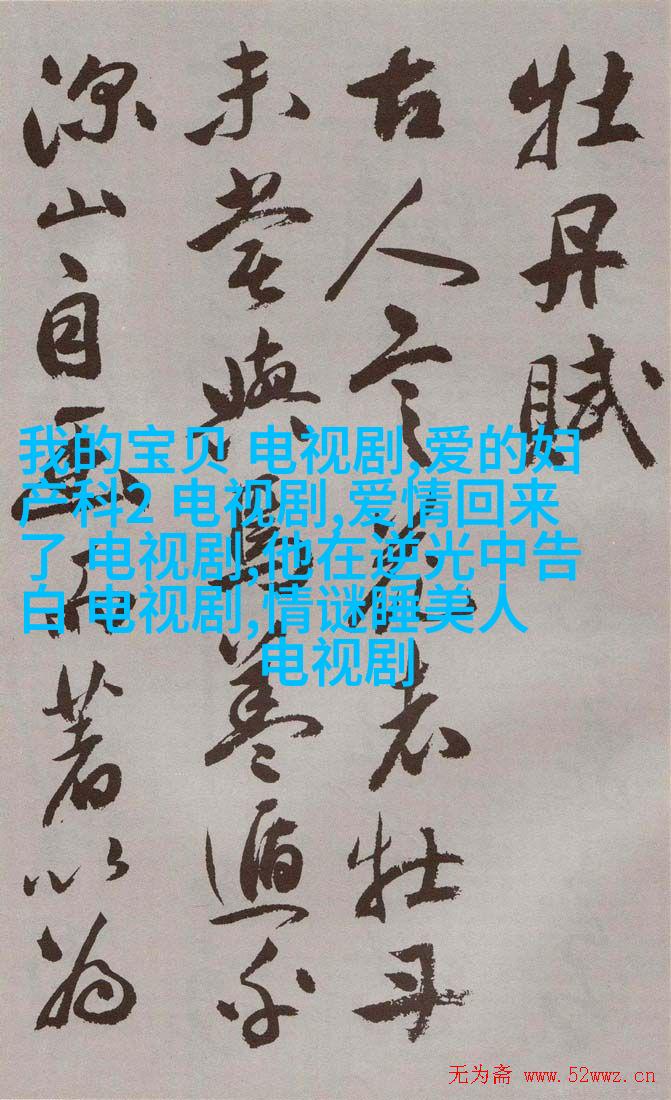 牡丹賦
古人言花者牡丹
未嘗與焉蓋遁乎
深山自幽而著以為
我的宝贝 电视剧,爱的妇
产科2 电视剧,爱情回来
了 电视剧,他在逆光中告
白 电视剧,情谜睡美人
电视剧
无为斋 www.52wwz.cn